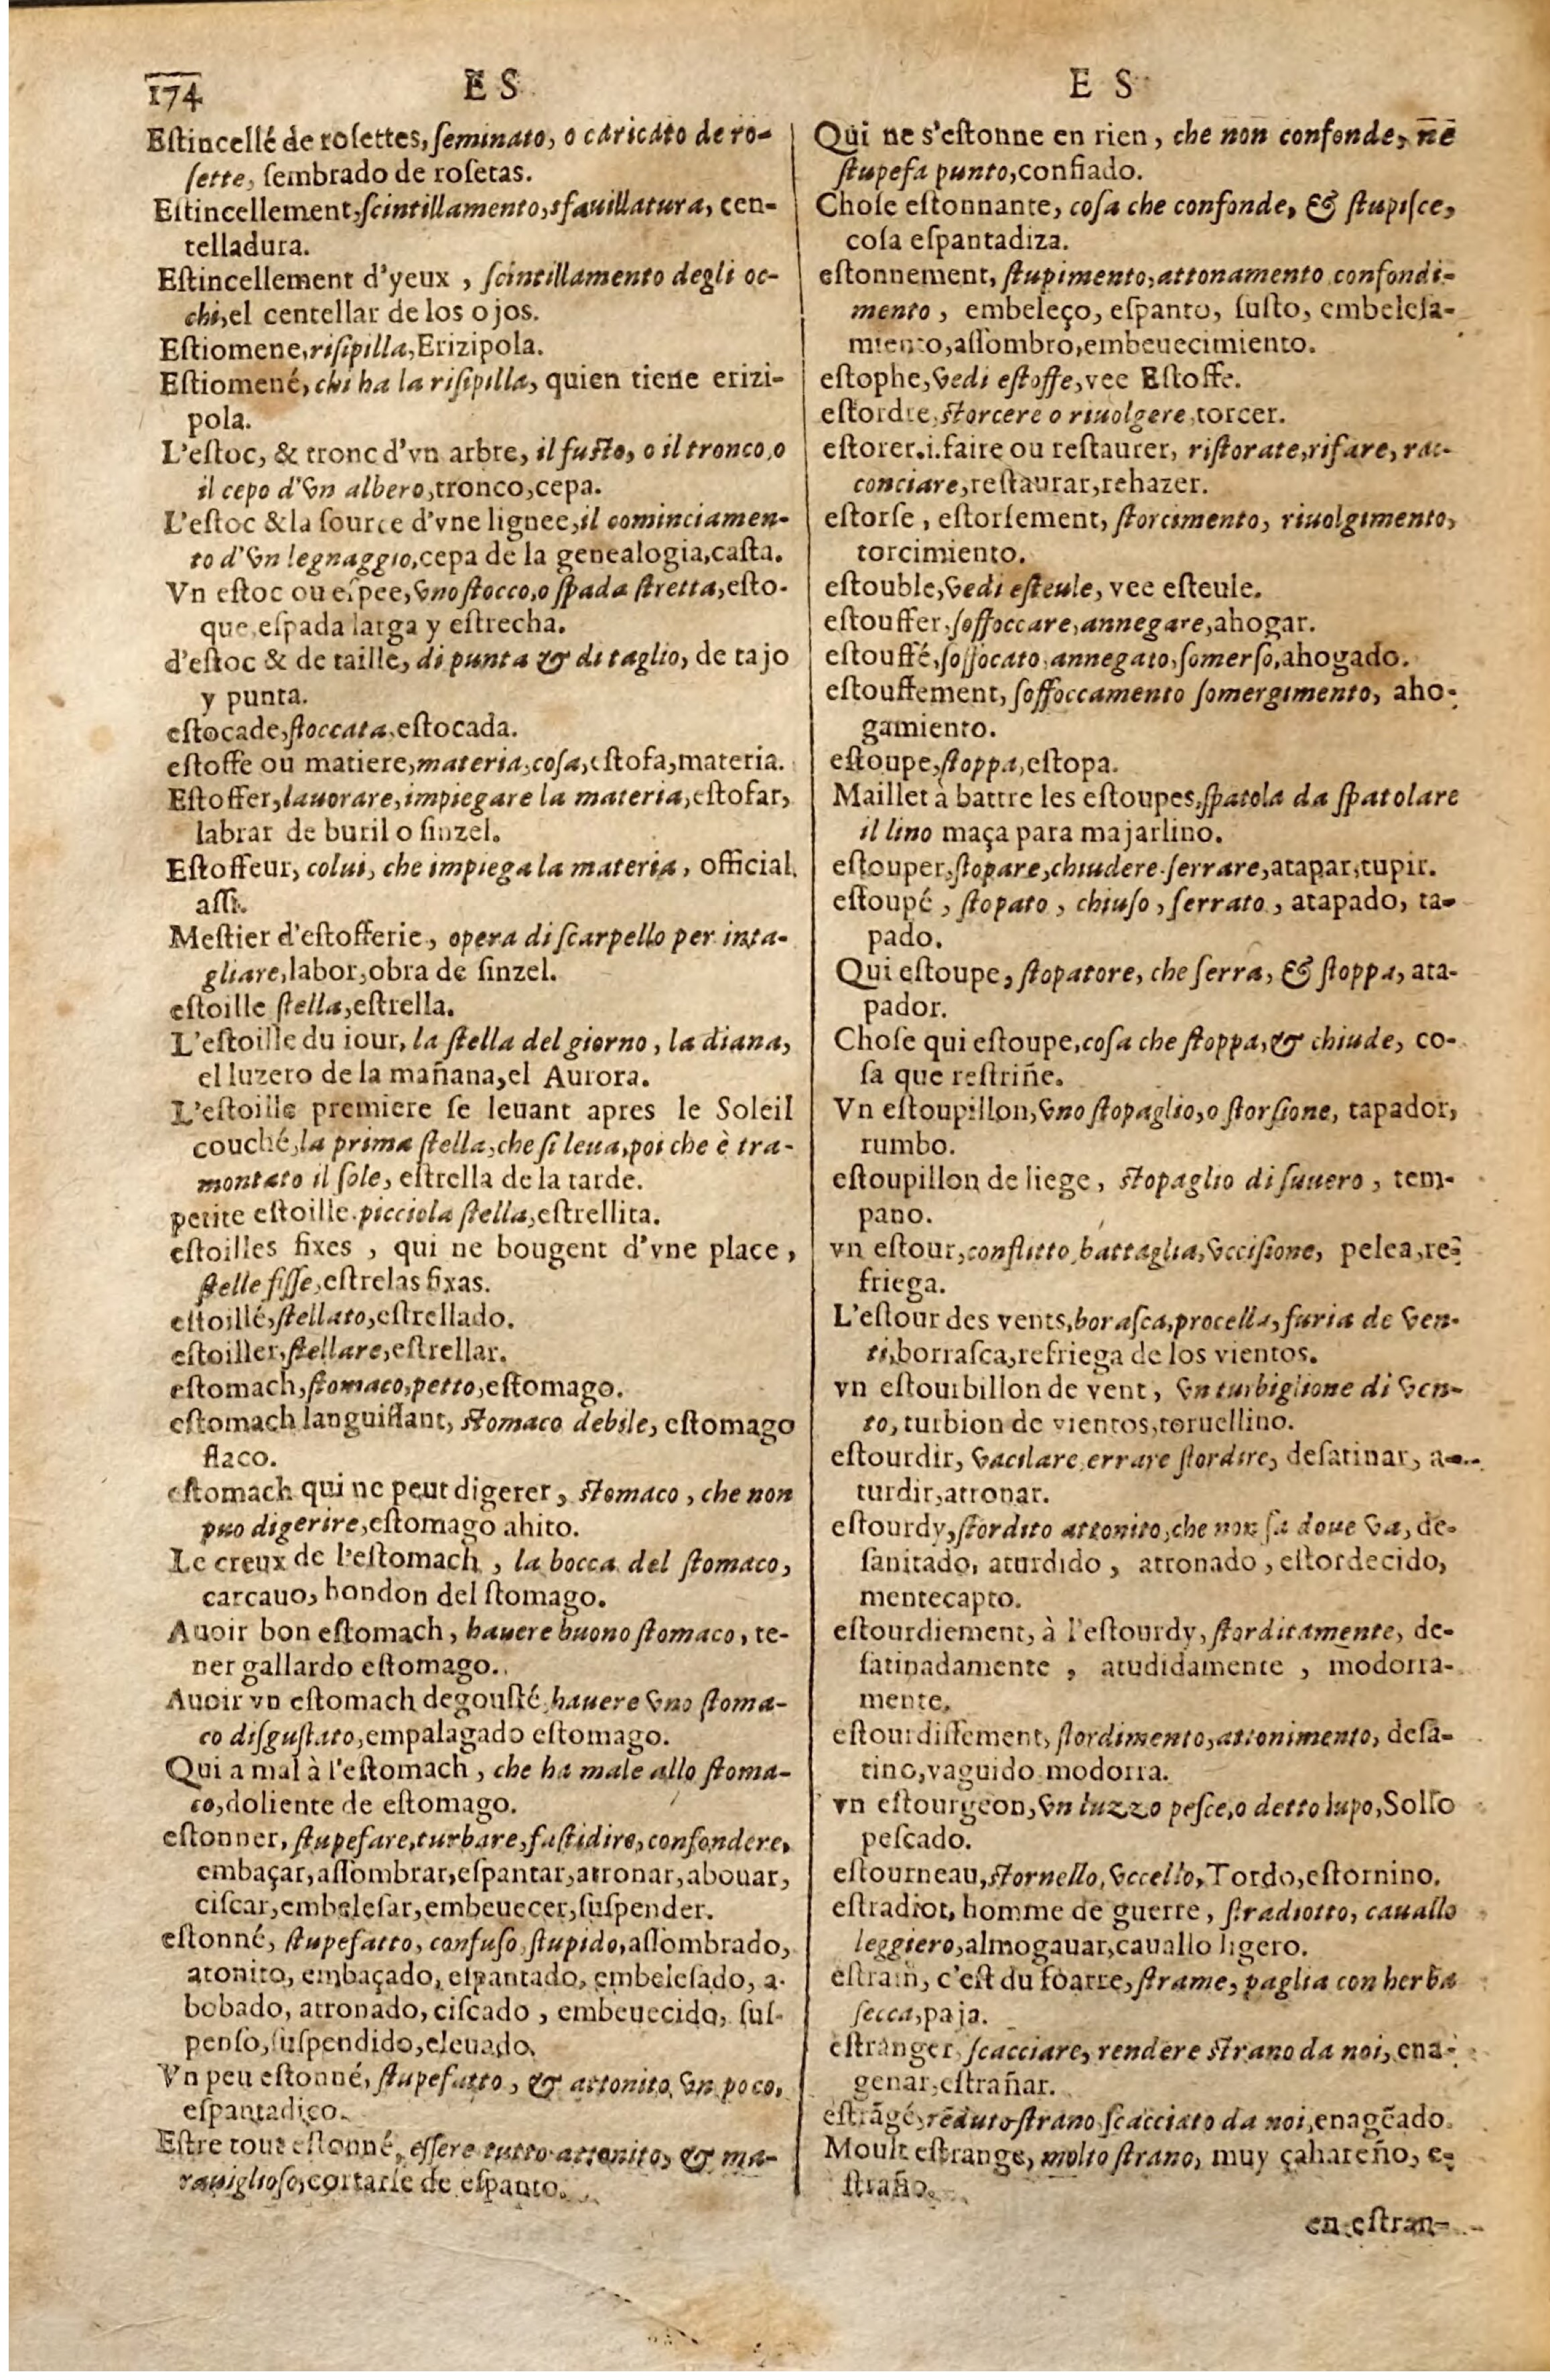 174
E S
E S
Eſtincellé de roſettes, ſeminato, o caricato de ro-
ſette, ſembrado de roſetas.
Eſtincellement, ſcintillamento, sfauillatura, cen-
telladura.
Eſtincellement d'yeux, ſcintillamento degli oc-
chi, el centellar de los ojos.
Eſtiomene, riſipilla, Erizipola.
Eſtiomené, chi ha la riſipilla, quien tiene erizi-
pola.
L'eſtoc, & tronc d'vn arbre, il fuſto, o il tronco, o
il cepo d'vn albero, tronco, cepa.
L'eſtoc & la ſource d'vne lignee, il cominciamen-
to d'vn legnaggio, cepa de la genealogia, caſta.
Vn eſtoc ou eſpee, vno ſtocco, o ſpada ſtretta, eſto-
que, eſpada larga y eſtrecha.
d'eſtoc & de taille, di punta & di taglio, de tajo
y punta.
eſtocade, ſtoccata, eſtocada.
eſtoffe ou matiere, materia, coſa, eſtofa, materia.
Eſtoffer, lauorare, impiegare la materia, eſtofar,
labrar de buril o ſinzel.
Eſtoffeur, colui, che impiega la materia, official
aſſi.
Meſtier d'eſtofferie, opera di ſcarpello per inta-
gliare, labor, obra de ſinzel.
eſtoille ſtella, eſtrella.
L'eſtoille du iour, la ſtella del giorno, la diana,
el luzero de la mañana, el Aurora.
L'eſtoille premiere ſe leuant apres le Soleil
couché, la prima ſtella, che ſi leua, poi che è tra-
montato il ſole, eſtrella de la tarde.
petite eſtoille. picciola ſtella, eſtrellita.
eſtoilles fixes, qui ne bougent d'vne place,
ſtelle fiſſe, eſtrelas fixas.
eſtoillé, ſtellato, eſtrellado.
eſtoiller, ſtellare, eſtrellar.
eſtomach, ſtomaco, petto, eſtomago.
eſtomach languiſſant, ſtomaco debile, eſtomago
flaco.
eſtomach qui ne peut digerer, ſtomaco, che non
puo digerire, eſtomago ahito.
Le creux de l'eſtomach, la bocca del ſtomaco,
carcauo, hondon del ſtomago.
Auoir bon eſtomach, hauere buono ſtomaco, te-
ner gallardo eſtomago.
Auoir vn eſtomach degouſté, hauere vno ſtoma-
co diſguſtato, empalagado eſtomago.
Qui a mal à l'eſtomach, che ha male allo ſtoma-
co, doliente de eſtomago.
eſtonner, ſtupefare, turbare, faſtidire, confondere,
embaçar, aſſombrar, eſpantar, atronar, abouar,
ciſcar, embeleſar, embeuecer, ſuſpender.
eſtonné, ſtupefatto, confuſo, ſtupido, aſſombrado,
atonito, embaçado, eſpantado, embeleſado, a-
bobado, atronado, ciſcado, embeuecido, ſuſ-
penſo, ſuſpendido, eleuado.
Vn peu eſtonné, ſtupefatto, & attonito, vn poco,
eſpantadiço.
Eſtre tout eſtonné, eſſere tutto attonito, & ma-
rauiglioſo, cortarſe de eſpanto.
Qui ne s'eſtonne en rien, che non confonde, ne
ſtupefa punto, confiado.
Choſe eſtonnante, coſa che confonde, & ſtupiſce,
coſa eſpantadiza.
eſtonnement, ſtupimento, attonamento confondi-
mento, embeleço, eſpanto, ſuſto, embeleſa-
miento, aſſombro, embeuecimiento.
eſtophe, vedi eſtoffe, vee Eſtoffe.
eſtordre, ſtorcere o riuolgere, torcer.
eſtorer. i. faire ou reſtaurer, riſtorate, rifare, rac-
conciare, reſtaurar, rehazer.
eſtorſe, eſtorſement, ſtorcimento, riuolgimento,
torcimiento.
eſtouble, vedi eſteule, vee eſteule.
eſtouffer, ſoffoccare, annegare, ahogar.
eſtouffé, ſoffocato, annegato, ſomerſo, ahogado.
eſtouffement, ſoffoccamento ſomergimento, aho-
gamiento.
eſtoupe, ſtoppa, eſtopa.
Maillet à battre les eſtoupes, ſpatola da ſpatolare
il lino maça para majar lino.
eſtouper, ſtopare, chiudere. ſerrare, atapar, tupir.
eſtoupé, ſtopato, chiuſo, ſerrato, atapado, ta-
pado.
Qui eſtoupe, ſtopatore, che ſerra, & ſtoppa, ata-
pador.
Choſe qui eſtoupe, coſa che ſtoppa, & chiude, co-
ſa que reſtriñe.
Vn eſtoupillon, vno ſtopaglio, o ſtorſione, tapador,
rumbo.
eſtoupillon de liege, ſtopaglio di ſuuero, tem-
pano.
vn eſtour, conflitto, battaglia, vcciſione, pelea, re-
friega.
L'eſtour des vents, boraſca, procella, furia de ven-
ti, borraſca, refriega de los vientos.
vn eſtourbillon de vent, vn turbiglione di ven-
to, turbion de vientos, toruellino.
eſtourdir, vacilare, errare ſtordire, deſatinar, a-
turdir, atronar.
eſtourdy, ſtordito attonito, che non ſa doue va, de-
ſanitado, aturdido, atronado, eſtordecido,
mentecapto.
eſtourdiement, à l'eſtourdy, ſtorditamente, de-
ſatinadamente, atudidamente, modorra-
mente.
eſtourdiſſement, ſtordimento, attonimento, deſa-
tino, vaguido modorra.
vn eſtourgeon, vn luzzo peſce, o detto lupo, Sollo
peſcado.
eſtourneau, ſtornello, vccello, Tordo, eſtornino.
eſtradiot, homme de guerre, ſtradiotto, cauallo
leggiero, almogauar, cauallo ligero.
eſtrain, c'eſt du foarre, ſtrame, paglia con herba
ſecca, paja.
eſtranger, ſcacciare, rendere ſtrano da noi, ena-
genar, eſtrañar.
eſtrãgé, rēduto ſtrano ſcacciato da noi, enagēado.
Moult eſtrange, molto ſtrano, muy çahareño, e-
ſtraño.
en eſtran-